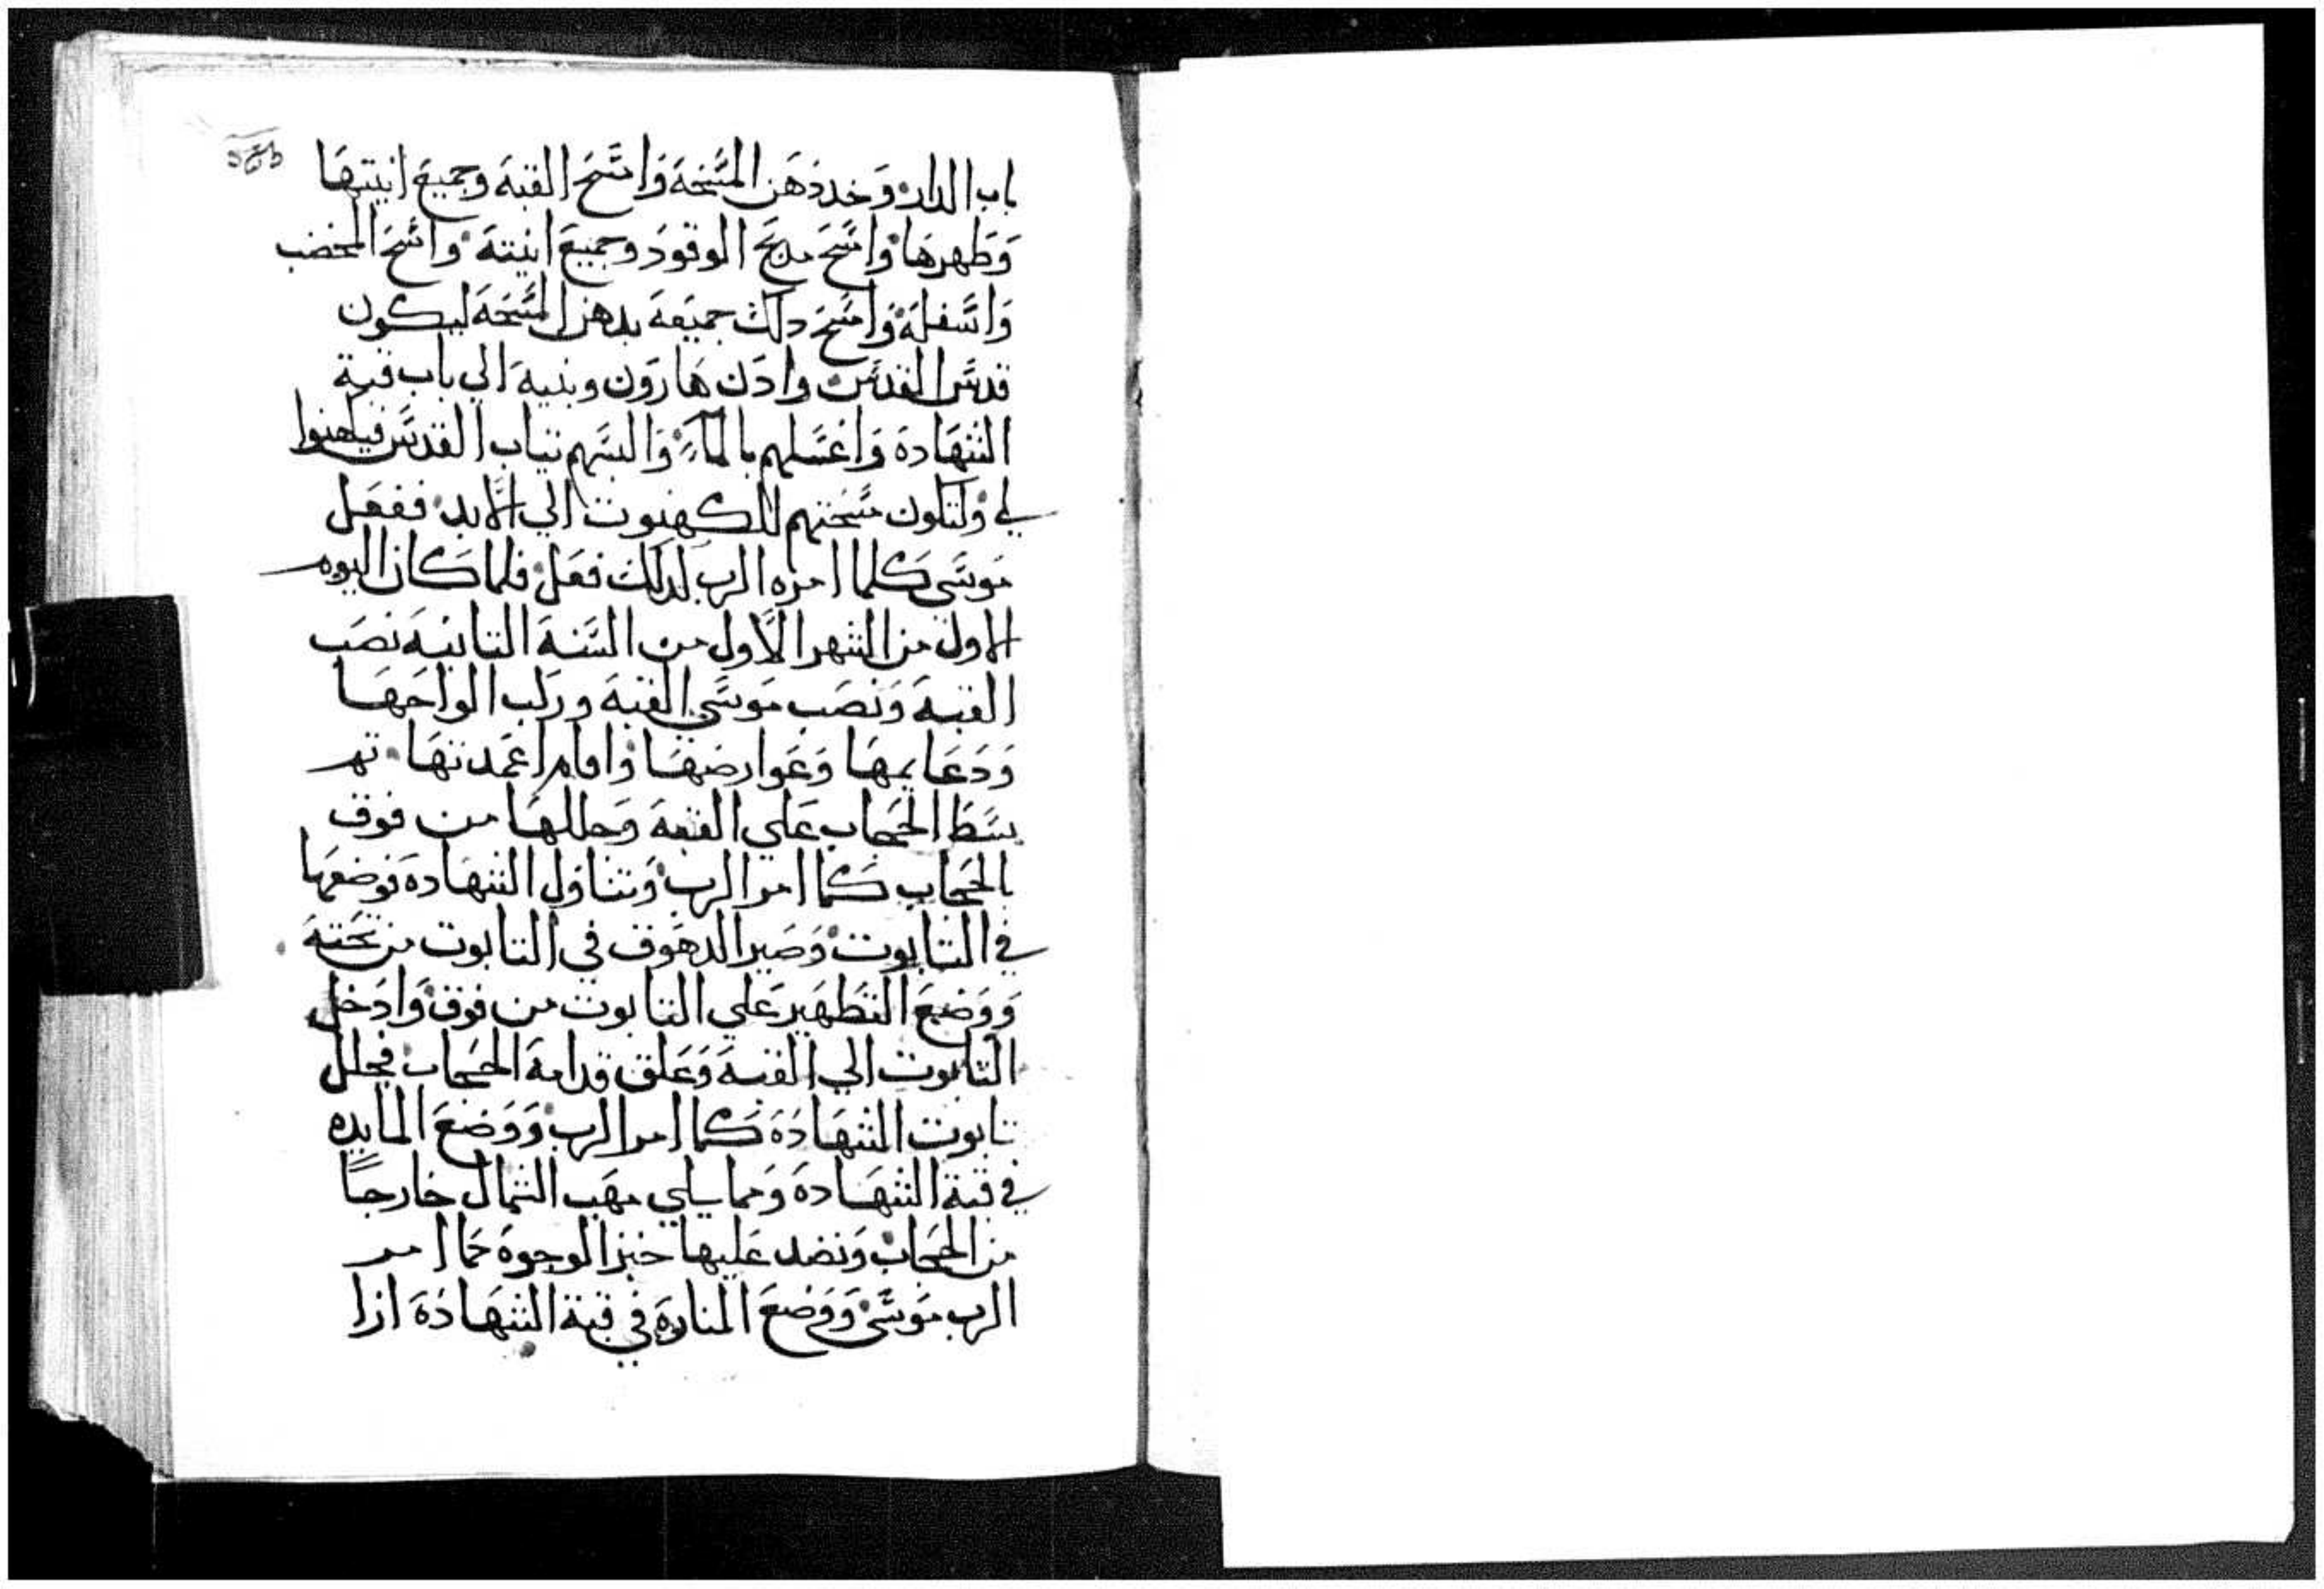 باب الدار وخد دهن المسَحة وامسَح القبة وجميع انيتها
وطهرها وامسَح مدبح الوقود وجميع انيته وامسَح المخضب
واسَفله وامسَح دلك جميعه بدهن المسَحة ليكون
قدسَ القدسَ وادن هارون وبنيه الي باب قبة
الشهادة واغسَلهم بالماء والبسَهم تياب القدسَ فيكهنوا
لي ولتكون مسَحتهم للكهنوت الي الابد ففعل
موسَي كلما امره الرب لدلك فعل فلما كان اليوم
الاول من الشهر الاول من السَنة التانية نصب
القبة ونصب موسَي القبة وركب الواحها
ودعايمها وعوارضها واقام اعمدتها تم
بسَط الحجاب علي القبة وجللها من فوق
بالحجاب كما امر الرب وتناول الشهادة فوضعها
في التابوت وصير الدهوق في التابوت من تحته
ووضع التطهير علي التابوت من فوق وادخل
التابوت الي القبة وعلق قدامة الحجاب فجلل
تابوت الشهادة كما امر الرب ووضع المايده
في قبة الشهادة ومما يلي مهب الشمال خارجاً
من الحجاب ونضد عليها خبز الوجوه كما امر
الرب موسَي ووضع المنارة في قبة الشهادة ازا